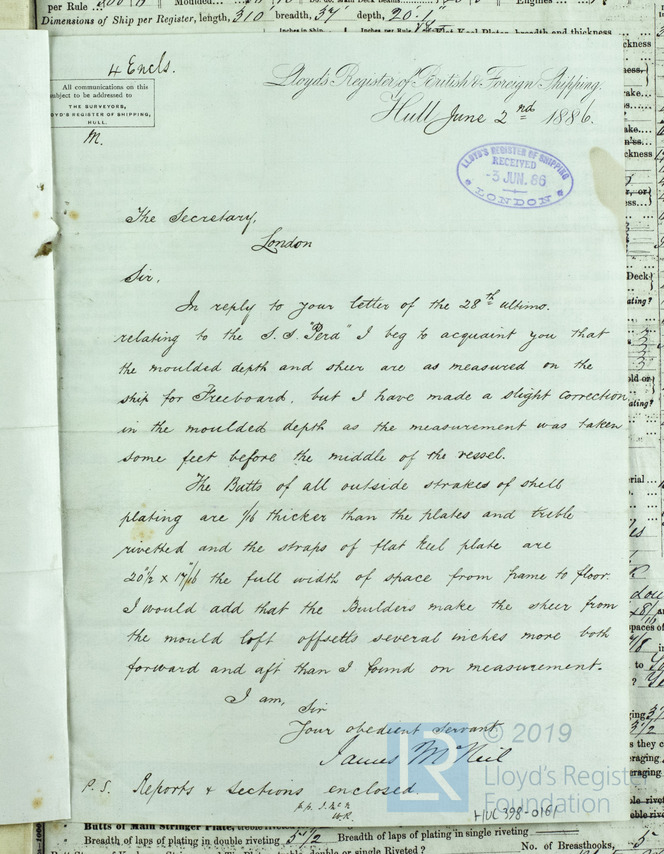 per Rule
Moulded
Engines
Dimensions of Ship per Register, length, 310 breadth, 37 depth, 20·1
4 Encls.
All communications on this
subject to be addressed to
THE SURVEYORS,
LLOYD'S REGISTER OF SHIPPING,
HULL.
M.
Lloyd's Register of British & Foreign Shipping.
Hull June 2nd 1886.
LLOYD'S REGISTER OF SHIPPING
RECEIVED
-3 JUN.86
LONDON
The Secretary,
London
Sir,
In reply to your letter of the 28th ultimo.
relating to the S.S. "Perd" I beg to acquaint you that
the moulded depth and sheer are as measured on the
ship for Freeboard, but I have made a slight correction
in the moulded depth as the measurement was taken
some feet before the middle of the vessel.
The Butts of all outside strakes of shell
plating are 1/16 thicker than the plates and treble
rivetted and the straps of flat keel plate are
20"1/2 x 17"/16 the full width of space from frame to floor.
I would add that the Builders make the sheer from
the mould loft offsetts several inches more both
forward and aft than I found on measurement.
I am, Sir
Your obedient servant
James McNeil
P.S. Reports & sections enclosed
© 2019
LR
Lloyd's Register
Foundation
HUL398-0161
Butts of Main Stringer Plate,
Breadth of laps of plating in double riveting 5 1/2 Breadth of laps of plating in single riveting
No. of Breasthooks,